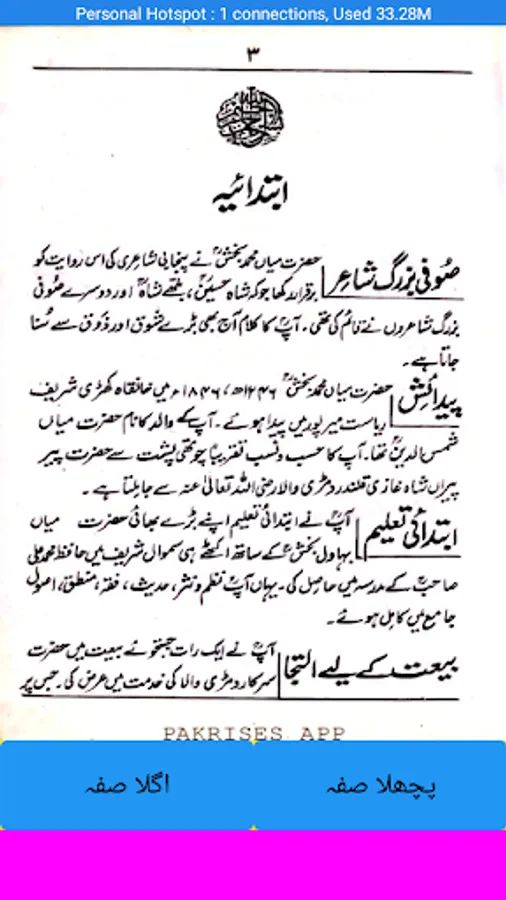 Personal Hotspot : 1 connections, Used 33.28M
۳
ابتدائیہ
صُوفی بزرگ شاعر
حضرت میاں محمد بخشؒ نے پنجابی شاعری کی اس روایت کو
برقرار رکھا جو کہ شاہ حسینؒ، بلھے شاہؒ اور دوسرے صُوفی
بزرگ شاعروں نے قائم کی تھی۔ آپؒ کا کلام آج بھی بڑے شوق اور ذوق سے سُنا
جاتا ہے۔
پیدائش
حضرت میاں محمد بخشؒ ۱۲۴۶ھ، ۱۸۴۶ء میں خانقاہ کھڑی شریف
ریاست میر پور میں پیدا ہوئے۔ آپ کے والد کا نام حضرت میاں
شمس الدینؒ تھا۔ آپ کا حسب و نسب تقریباً چوتھی پشت سے حضرت پیر
پیراں شاہ غازی قلندر دمڑی والا رضی اللہ تعالیٰ عنہ سے جا ملتا ہے۔
ابتدائی تعلیم
آپؒ نے ابتدائی تعلیم اپنے بڑے بھائی حضرت میاں
بہاول بخشؒ کے ساتھ اکٹھے ہی سموال شریف میں حافظ محمد علی
صاحبؒ کے مدرسہ میں حاصل کی۔ یہاں آپؒ نظم و نثر، حدیث، فقہ، منطق، اصول
جامع میں کامل ہوئے۔
بیعت کے لیے التجا
آپؒ نے ایک رات جستجوئے بیعت میں حضرت
سرکار دمڑی والا کی خدمت میں عرض کی۔ جس پر
PAKRISES APP
پچھلا صفہ
اگلا صفہ